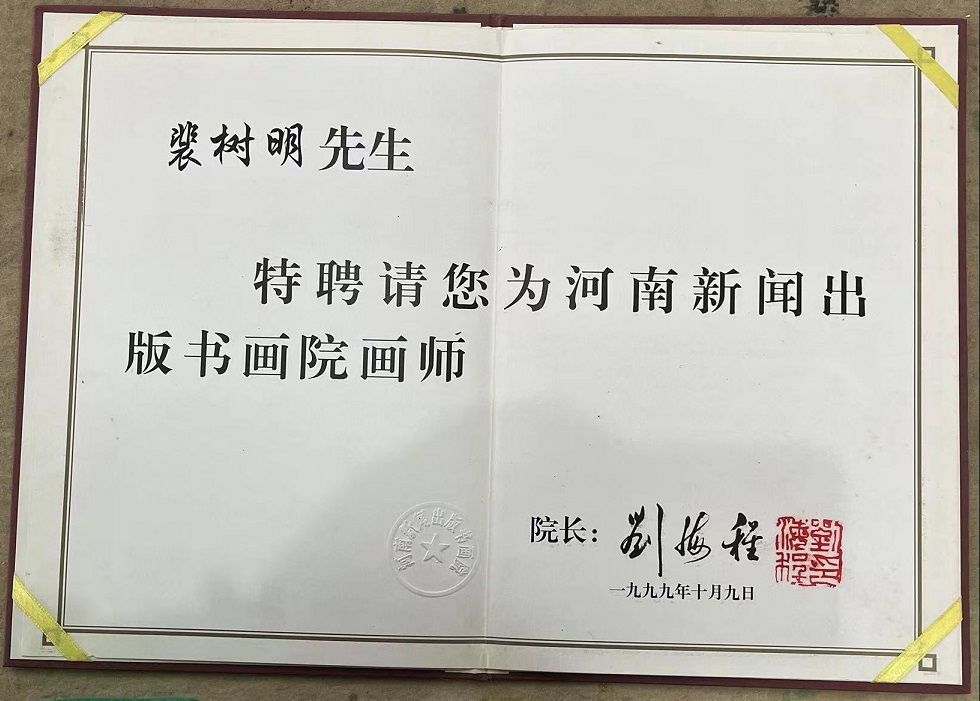 裴树明 先生
特聘请您为河南新闻出
版书画院画师
院长：劉海程
一九九九年十月九日
河南新闻出版书画院
劉海程印